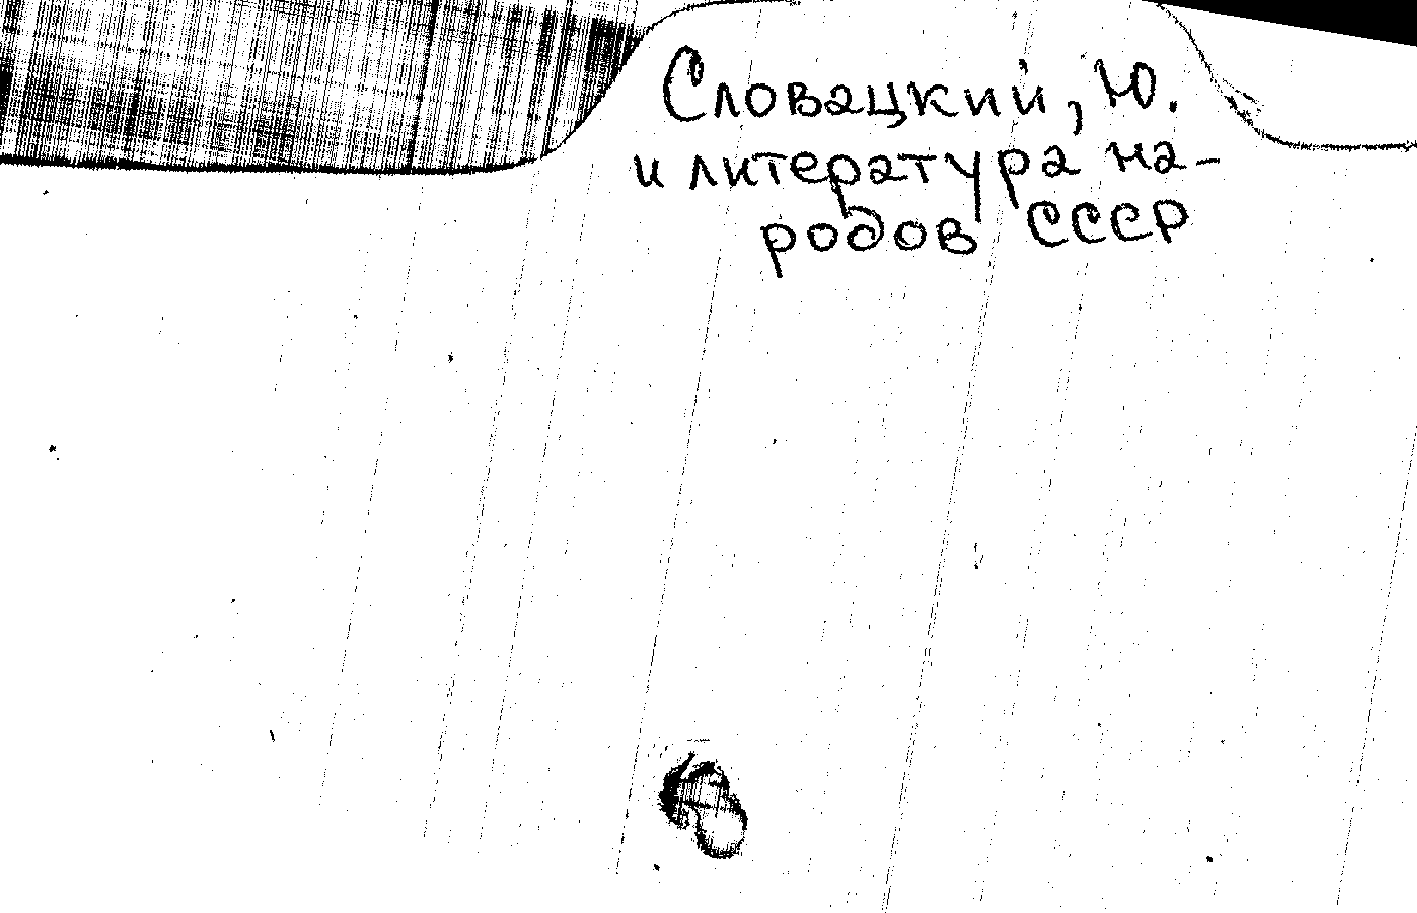 Словацкий, Ю.
и литература на-
родов СССР